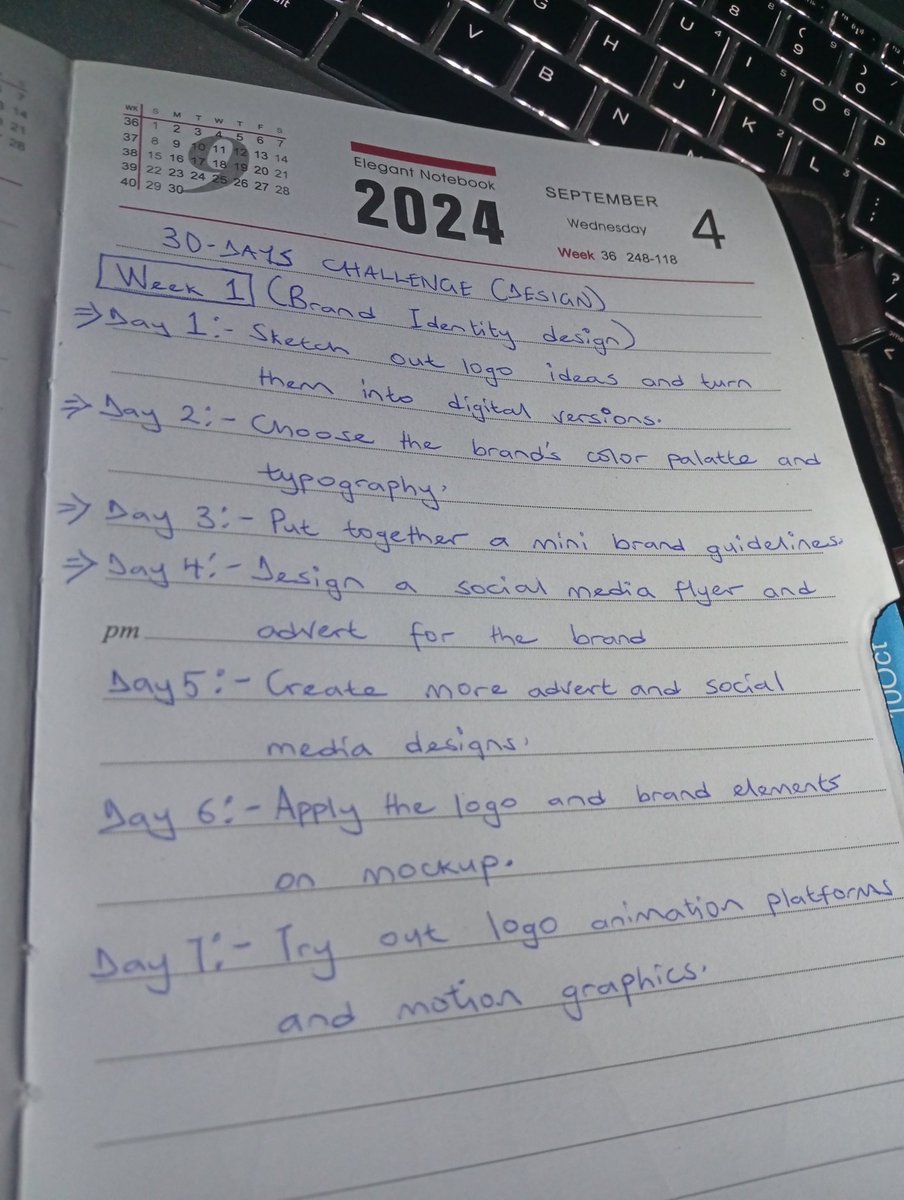 WK S M T W T F S
36 1 2 3 4 5 6 7
37 8 9 10 11 12 13 14
38 15 16 17 18 19 20 21
39 22 23 24 25 26 27 28
40 29 30
9
Elegant Notebook
2024
SEPTEMBER
Wednesday
4
Week 36 248-118
30-DAYS CHALLENGE (DESIGN)
Week 1 (Brand Identity design)
⇒ Day 1:- Sketch out logo ideas and turn
them into digital versions.
⇒ Day 2:- Choose the brand's color palatte and
typography.
⇒ Day 3:- Put together a mini brand guidelines.
⇒ Day 4:- Design a social media flyer and
pm advert for the brand
Day 5:- Create more advert and social
media designs.
Day 6:- Apply the logo and brand elements
on mockup.
Day 7:- Try out logo animation platforms
and motion graphics.
V
B
N
G
H
J
K 2
L 3
U 4
I 5
O 6
P
8
9
0
7
14
21
28